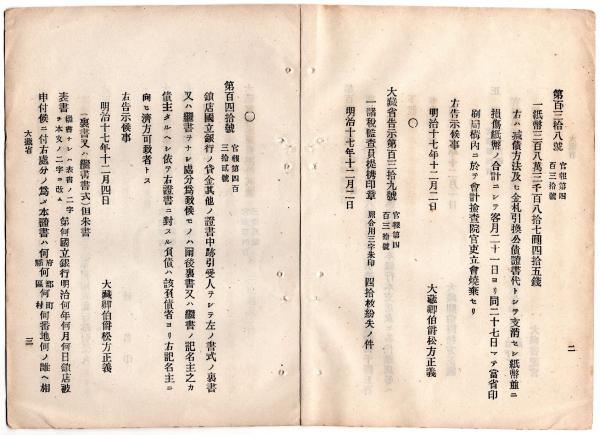 第百三拾八號 官報第四百三拾號
一紙幣三百八萬三千百八拾七圓四拾五錢
右ハ減債方法及ヒ金札引換公債證書代トシテ支消セシ紙幣並ニ
損傷紙幣ノ合計ニシテ客月二十一日ヨリ同二十七日マテ當省印
刷局構內ニ於テ會計檢查院官吏立會燒棄セリ
右告示候事
明治十七年十二月二日
大藏卿伯爵松方正義
〇
大藏省告示第百三拾九號 官報第四百三拾號
一諸稅監查員提携印章 照合用三字朱印 四拾枚紛失ノ件
明治十七年十二月二日
大藏卿伯爵松方正義
二
〇
第百四拾號 官報第四百三拾貳號
鎖店國立銀行ノ貸金其他ノ證書中跡引受人ヲシテ左ノ書式ノ裏書
又ハ繼書ヲナシ處分爲致候モノハ爾後裏書又ハ繼書ノ記名主之カ
債主タルヘシ依テ右證書ニ對スル負債ハ該負債者ヨリ右記名主ニ
向ヒ濟方可致者トス
右告示候事
明治十七年十二月四日
大藏卿伯爵松方正義
(裏書又ハ繼書書式)但朱書
表書 繼書ナレハ表書ノ二字ヲ本文ノ二字ニ改ム 第何國立銀行明治何年何月何日鎖店被
申付候ニ付右處分ノ爲メ本證書ハ何府縣何郡區何町村何番地何ノ誰ヘ相
大藏省
三